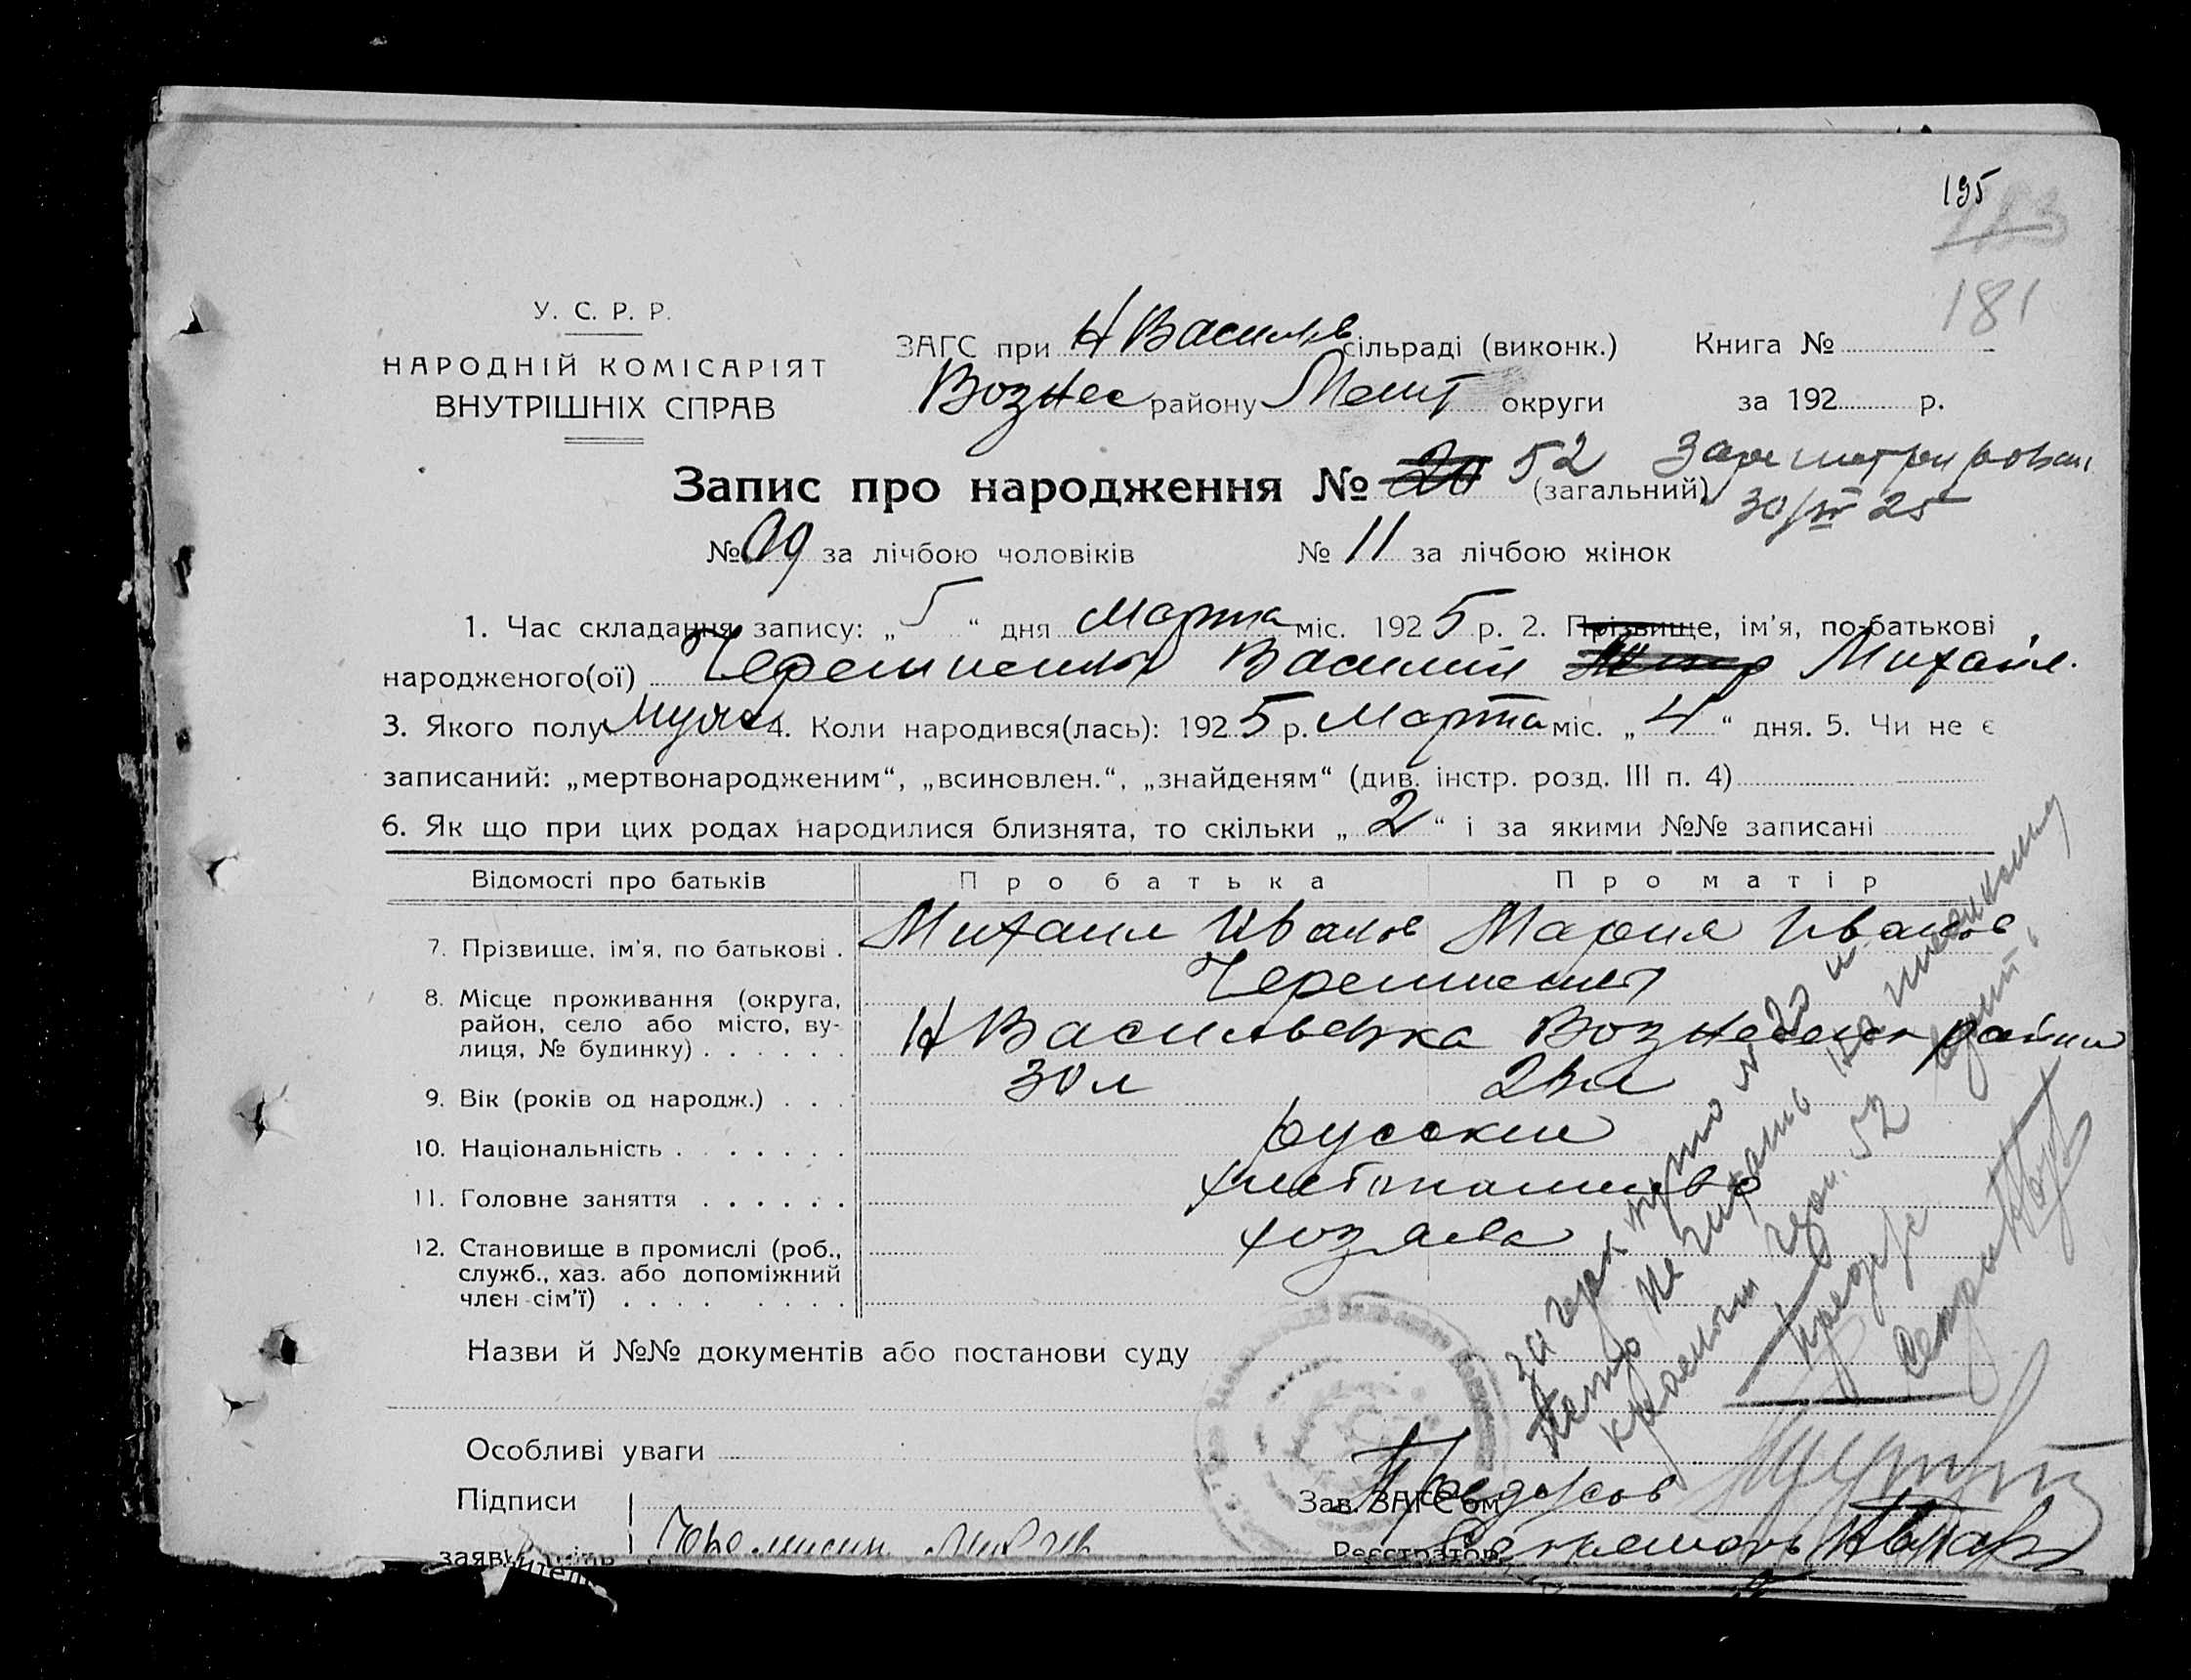 195
181
У. С. Р. Р.
НАРОДНІЙ КОМІСАРІЯТ
ВНУТРІШНІХ СПРАВ
ЗАГС при Н Василів сільраді (виконк.) Книга №
Вознес району Мелит округи за 192 р.
Запис про народження № 20 52 (загальний)
Зарегистрирован
30/III 25
№ 09 за лічбою чоловіків № 11 за лічбою жінок
1. Час складання запису: „ 5 “ дня Марта міс. 192 5 р. 2. Прізвище, ім’я, по-батькові
народженого(ої) Василий Михайл.
3. Якого полу Мужс 4. Коли народився(лась): 192 5 р. Марта міс. „ 4 “ дня. 5. Чи не є
записаний: „мертвонародженим“, „всиновлен.“, „знайденям“ (див. інстр. розд. III п. 4)
6. Як що при цих родах народилися близнята, то скільки „ 2 “ і за якими №№ записані
Відомості про батьків Про батька Про матір
7. Прізвище, ім’я, по батькові . Михаил Иванов Мария Иванов
8. Місце проживання (округа,
район, село або місто, ву-
лиця, № будинку) . . . . . . Н Васильевка Вознесенк района
9. Вік (років од народж.) . . . 30 л
10. Національність . . . . . . . русские
11. Головне заняття . . . . . . хлебопашество
12. Становище в промислі (роб.,
служб., хаз. або допоміжний
член сім’ї) . . . . . . . . хозяева
Зачеркнуто № 20 и
Петро не читать а написанному
красным черн. 52 верит.
Предс/с
Секрет
Назви й №№ документів або постанови суду
Особливі уваги
Підписи
Зав. ЗАГС’ом
Реєстратор